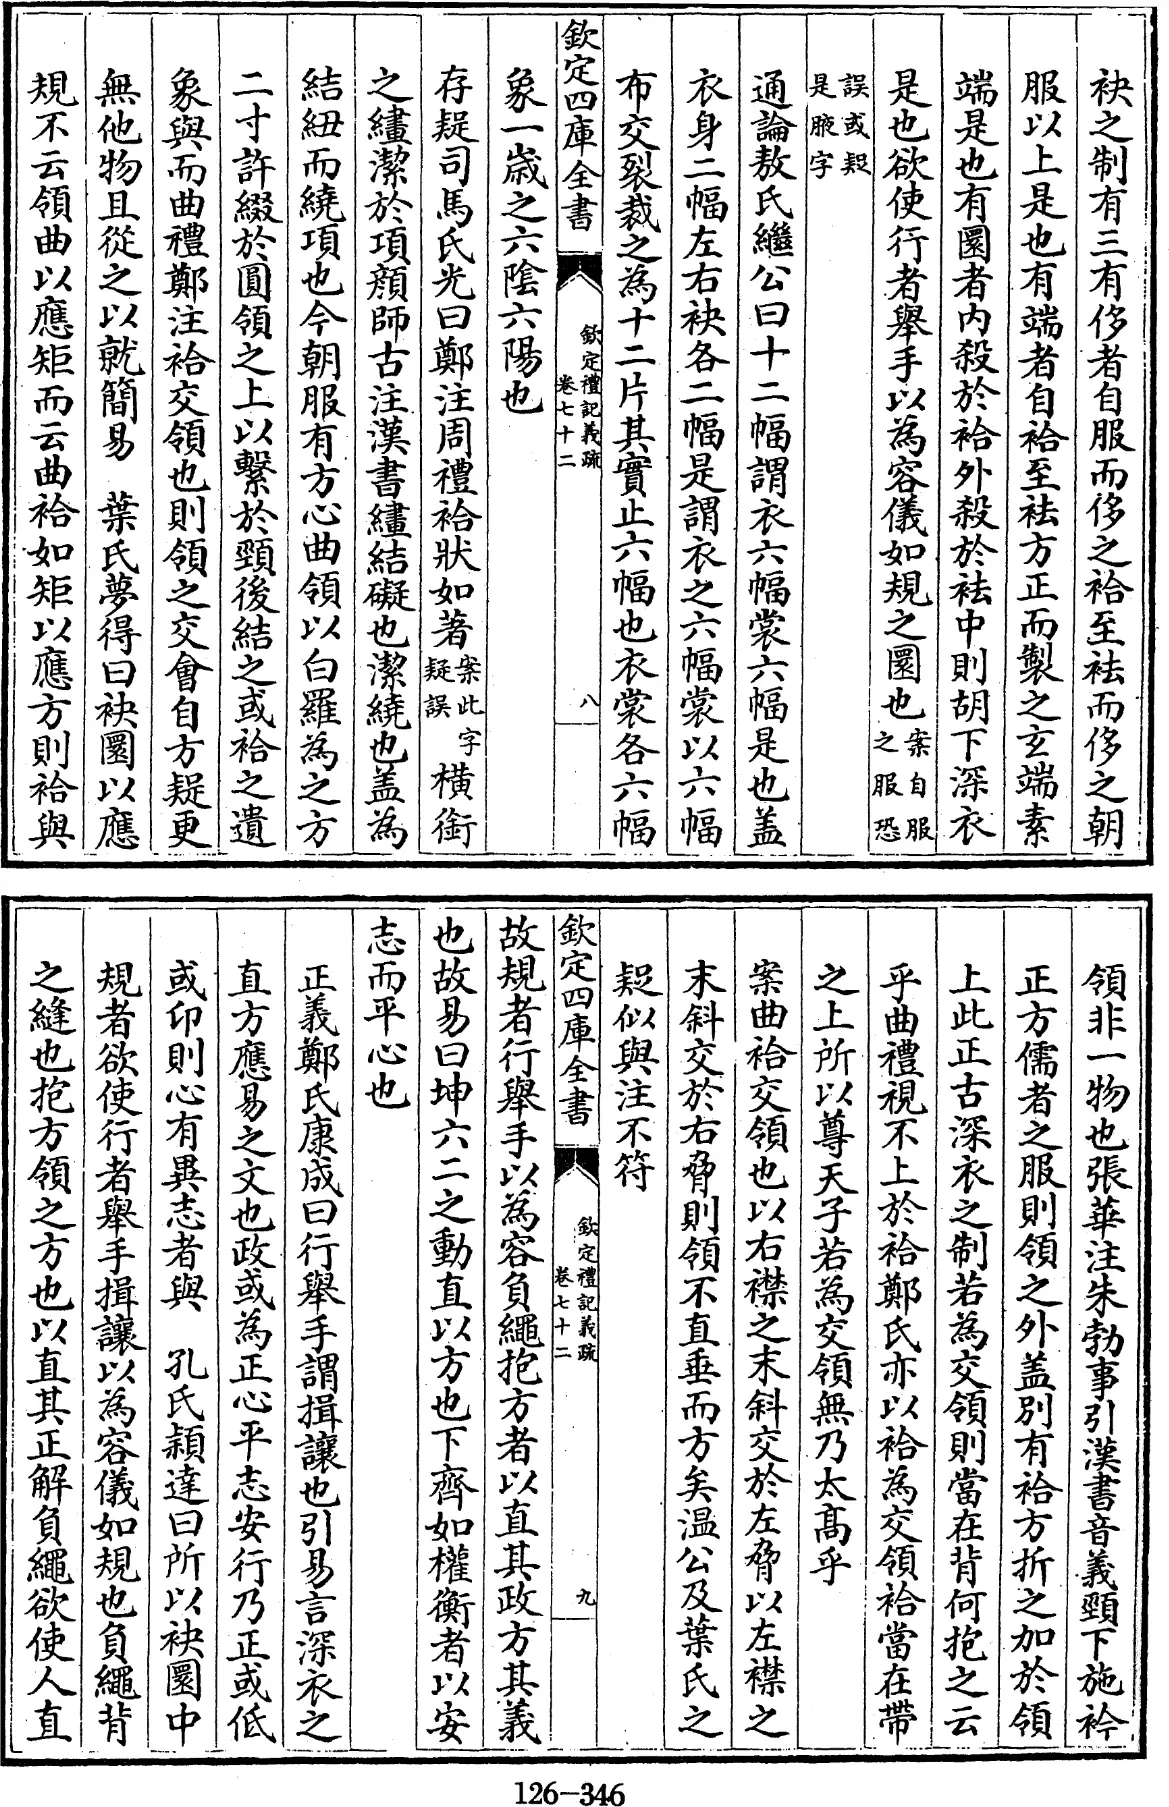 袂之制有三有侈者自服而侈之袷至袪而侈之朝
服以上是也有端者自袷至袪方正而製之玄端素
端是也有圜者内殺於袷外殺於袪中則胡下深衣
是也欲使行者舉手以為容儀如規之圜也案自服之服恐
誤或疑是腋字
通論敖氏繼公曰十二幅謂衣六幅裳六幅是也盖
衣身二幅左右袂各二幅是謂衣之六幅裳以六幅
布交裂裁之為十二片其實止六幅也衣裳各六幅
欽定四庫全書 欽定禮記義疏卷七十二 八
象一歳之六陰六陽也
存疑司馬氏光曰鄭注周禮袷狀如著案此字疑誤橫銜
之繣潔於項顔師古注漢書繣結礙也潔繞也盖為
結紐而繞項也今朝服有方心曲領以白羅為之方
二寸許綴於圓領之上以繫於頸後結之或袷之遺
象與而曲禮鄭注袷交領也則領之交會自方疑更
無他物且從之以就簡易 葉氏夢得曰袂圜以應
規不云領曲以應矩而云曲袷如矩以應方則袷與
領非一物也張華注朱勃事引漢書音義頸下施衿
正方儒者之服則領之外盖别有袷方折之加於領
上此正古深衣之制若為交領則當在背何抱之云
乎曲禮視不上於袷鄭氏亦以袷為交領袷當在帶
之上所以尊天子若為交領無乃太髙乎
案曲袷交領也以右襟之末斜交於左脅以左襟之
末斜交於右脅則領不直垂而方矣温公及葉氏之
疑似與注不符
欽定四庫全書 欽定禮記義疏卷七十二 九
故規者行舉手以為容負繩抱方者以直其政方其義
也故易曰坤六二之動直以方也下齊如權衡者以安
志而平心也
正義鄭氏康成曰行舉手謂揖讓也引易言深衣之
直方應易之文也政或為正心平志安行乃正或低
或卬則心有異志者與 孔氏穎達曰所以袂圜中
規者欲使行者舉手揖讓以為容儀如規也負繩背
之縫也抱方領之方也以直其正解負繩欲使人直
126-346